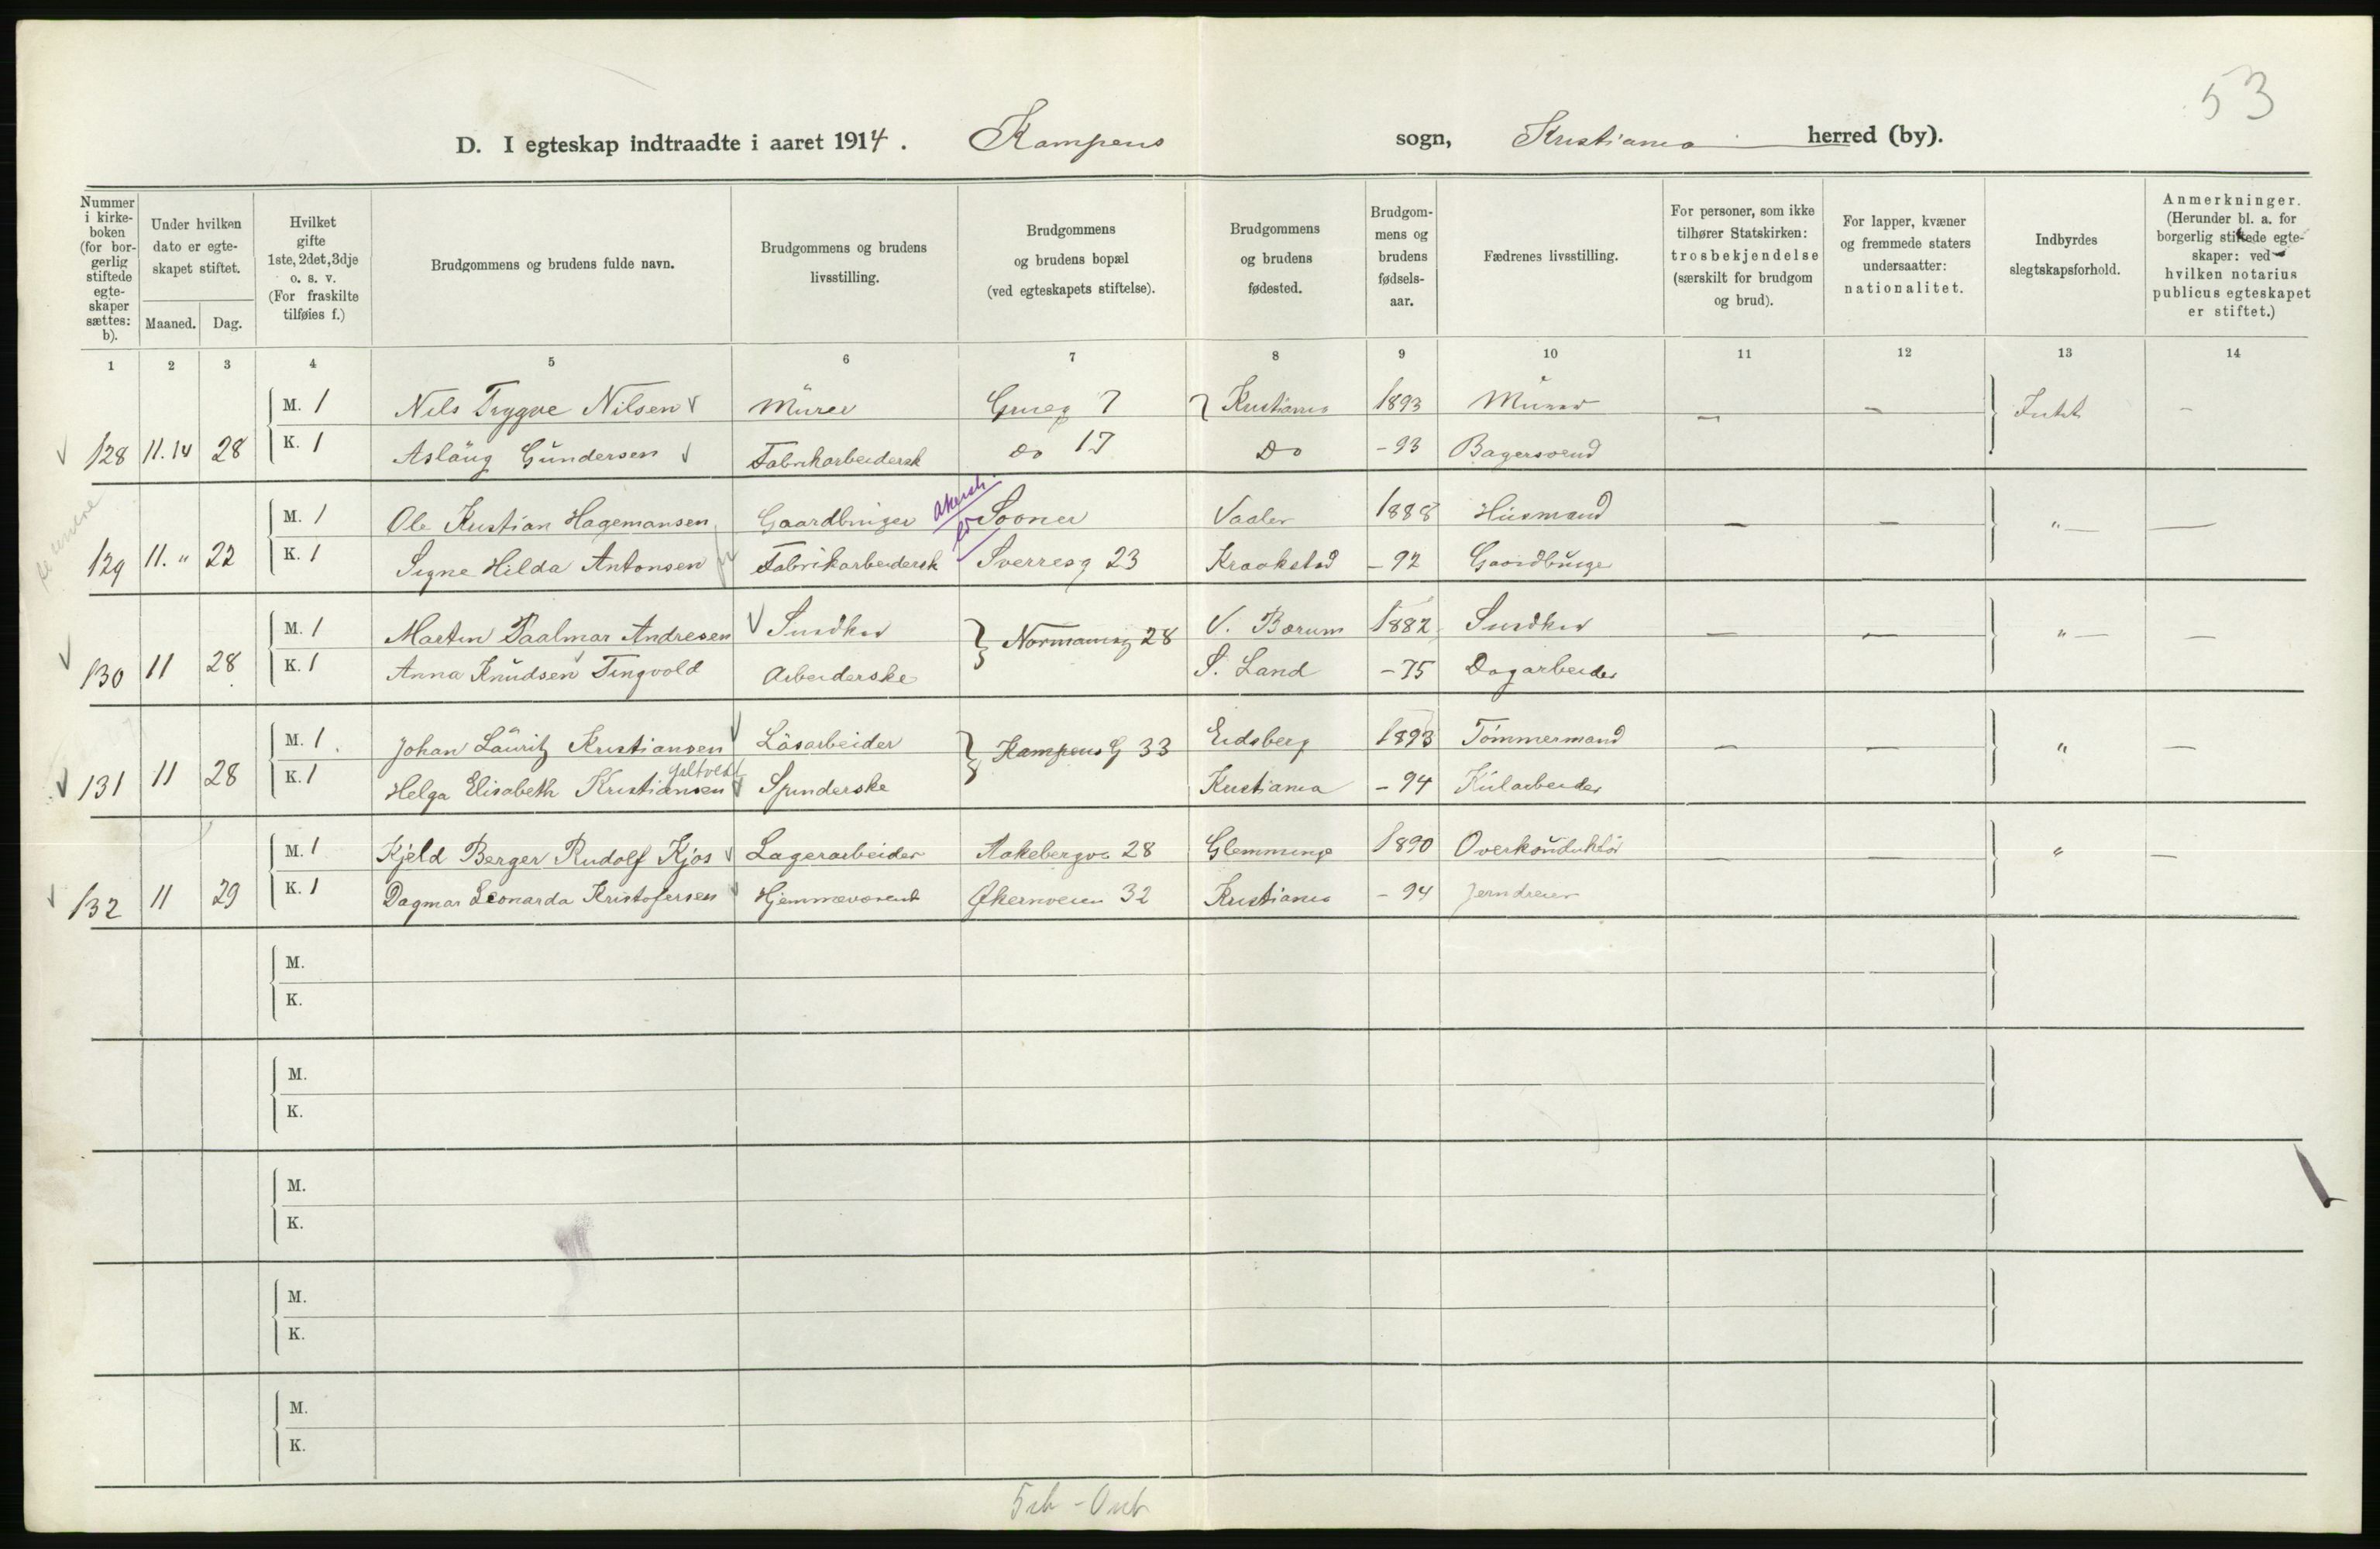 53
D. I egteskap indtraadte i aaret 1914. Kampens sogn, Kristiania herred (by).
Nummer i kirkeboken (for borgerlig stiftede egteskaper sættes: b).
Under hvilken dato er egteskapet stiftet.
Maaned. Dag.
Hvilket gifte 1ste, 2det, 3dje o. s. v. (For fraskilte tilføies f.)
Brudgommens og brudens fulde navn.
Brudgommens og brudens livsstilling.
Brudgommens og brudens bopæl (ved egteskapets stiftelse).
Brudgommens og brudens fødested.
Brudgommens og brudens fødselsaar.
Fædrenes livsstilling.
For personer, som ikke tilhører Statskirken: trosbekjendelse (særskilt for brudgom og brud).
For lapper, kvæner og fremmede staters undersaatter: nationalitet.
Indbyrdes slegtskapsforhold.
Anmerkninger. (Herunder bl. a. for borgerlig stiftede egteskaper: ved hvilken notarius publicus egteskapet er stiftet.)
1 2 3 4 5 6 7 8 9 10 11 12 13 14
M. 1 Nils Trygve Nilsen Murer 7 Kristiania 1893 Murer — — Intet —
128 11.14 28 K. 1 Aslaug Gundersen Fabrikarbeidersk do 17 Do - 93 Bagersvend
M. 1 Ole Kristian Hagemansen Gaardbruger Akersh Sooner Vaaler 1888 Husmand — — " — —
129 11. " 22 K. 1 Signe Hilda Antonsen Fabrikarbeidersk Sverresg 23 Kraakstad - 92 Gaardbruger
M. 1 Martin Paalmar Andresen Snedker Normannsg 28 V. Bærum 1882 Snedker — — " — —
130 11 28 K. 1 Anna Knudsen Tingvold Arbeiderske S. Land - 75 Dagarbeider
M. 1 Johan Lauritz Kristiansen Løsarbeider Kampens G 33 Eidsberg 1893 Tømmermand — — " —
131 11 28 K. 1 Helga Elisabeth Kristiansen Spinderske Kristiania - 94 Kularbeider
M. 1 Kjeld Berger Rudolf Kjos Lagerarbeider Aakebergv. 28 Glemminge 1890 Overkonduktør — — " —
132 11 29 K. 1 Dagmar Leonarda Kristofersen Hjemmeværende Økernveien 32 Kristiania - 94 Jerndreier
M.
K.
M.
K.
M.
K.
M.
K.
M.
K.